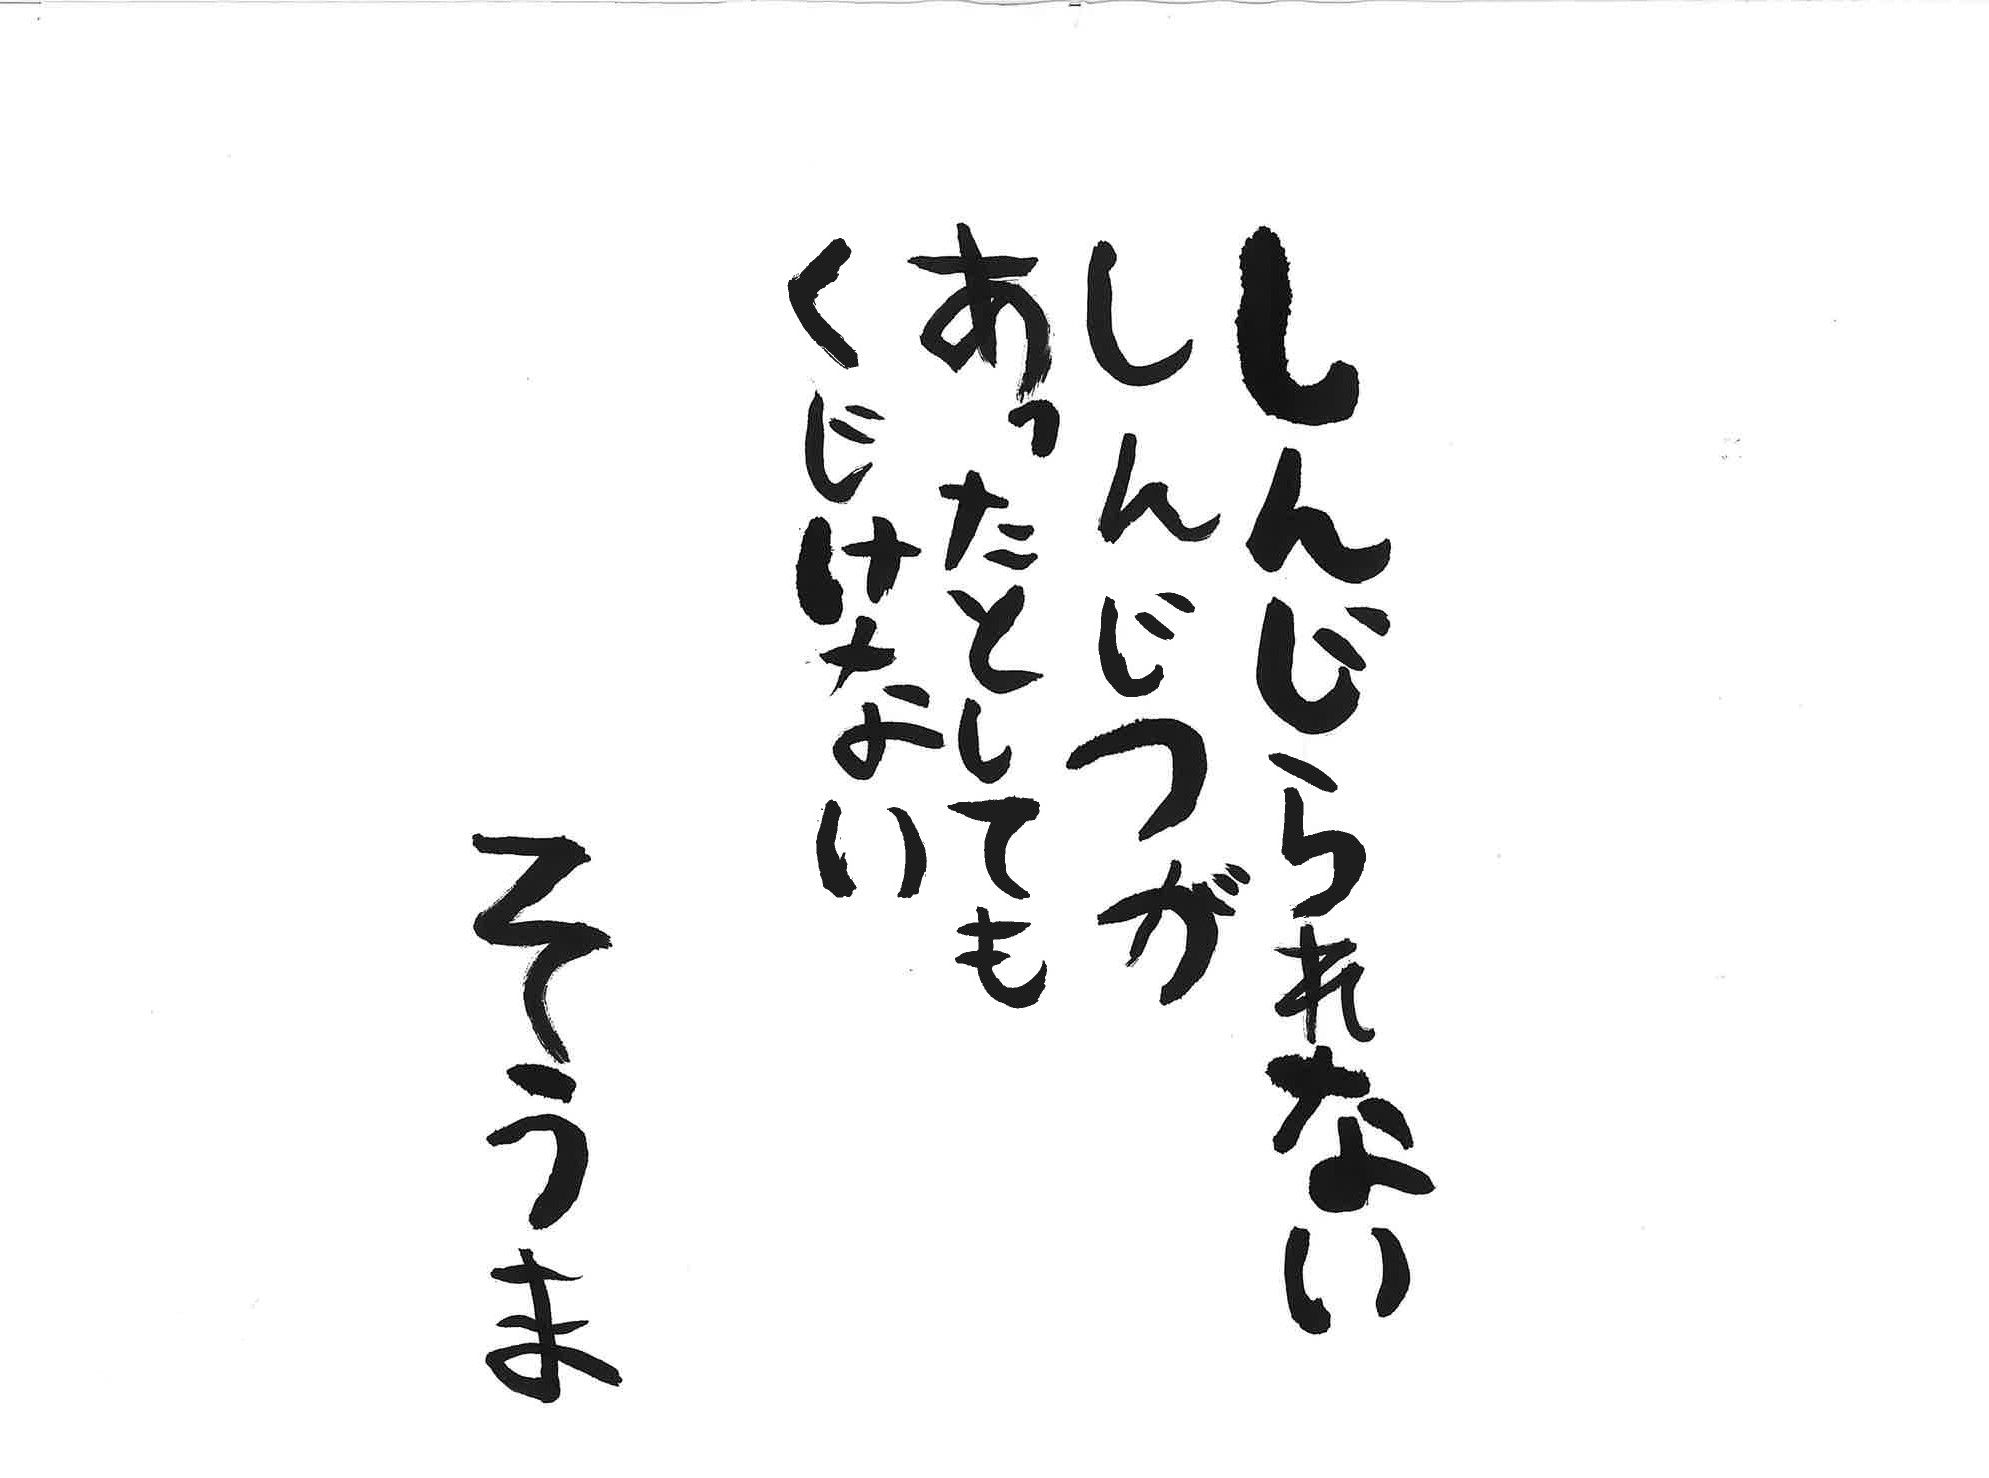 しんじられない
しんじつが
あったとしても
くじけない
そうま